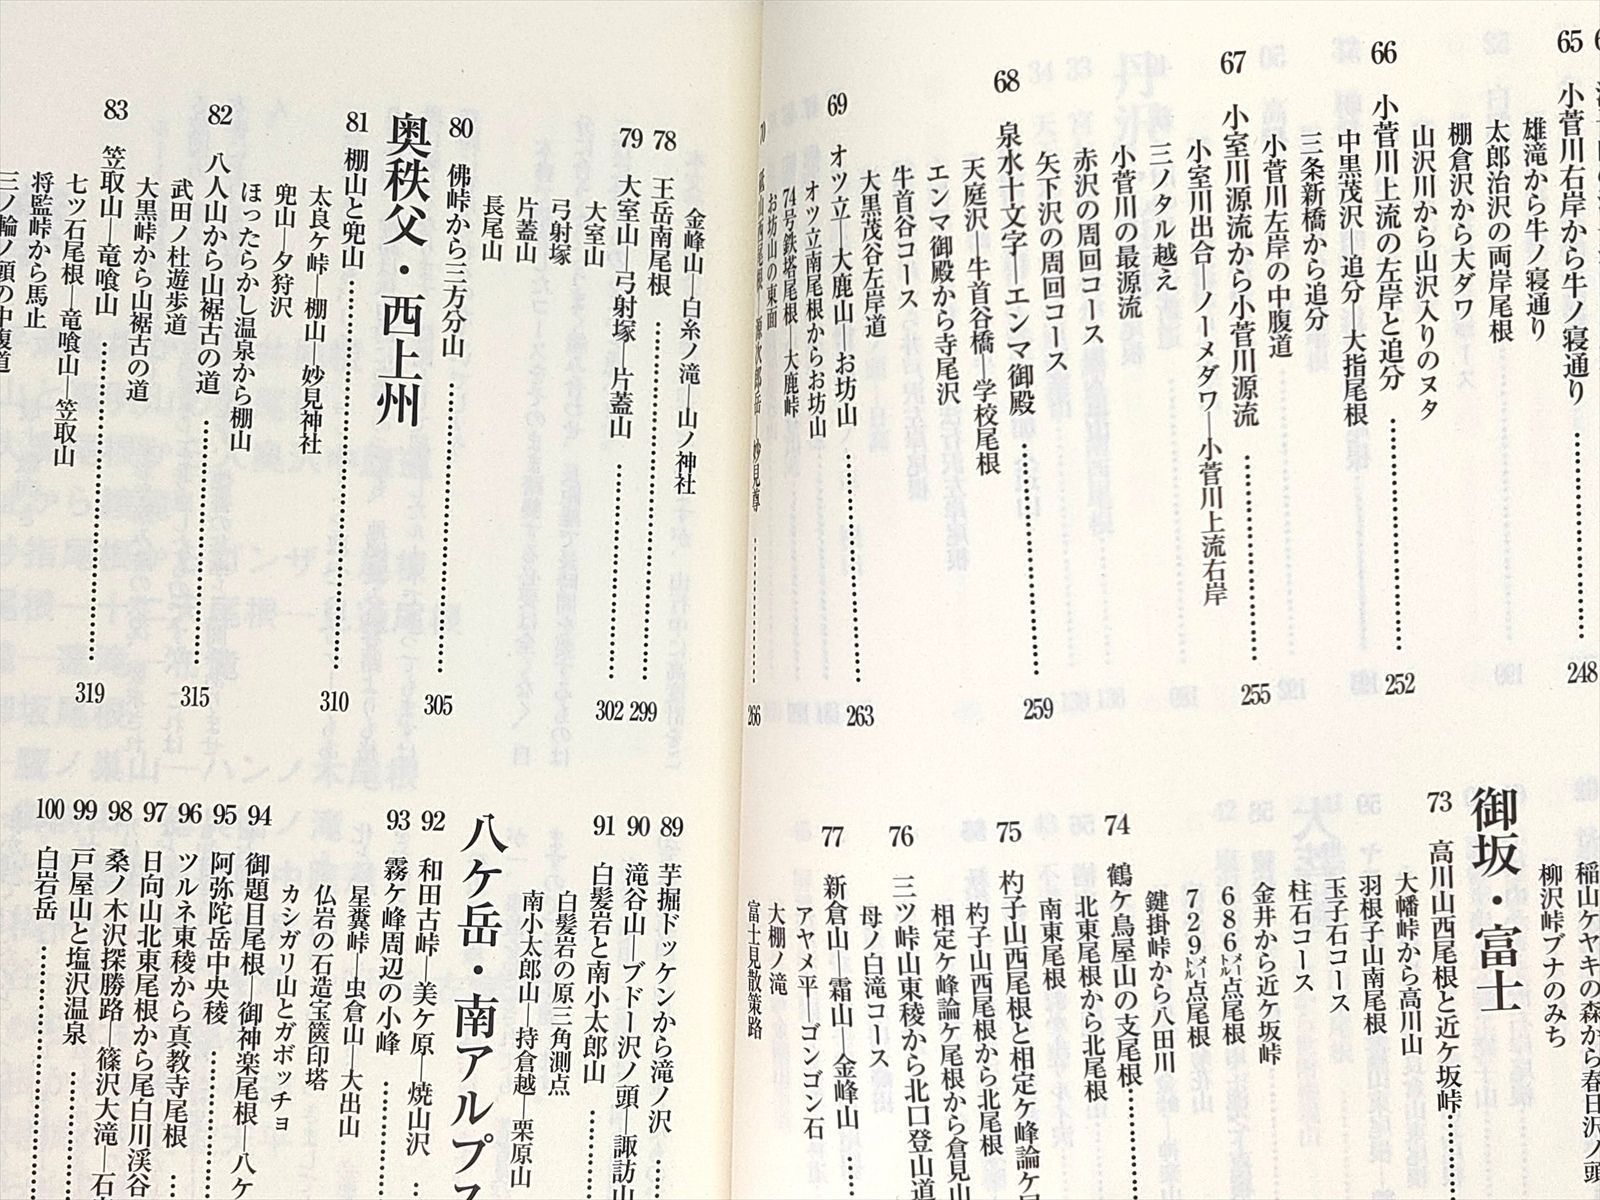 65 小菅川右岸から牛ノ寝通り 248
雄滝から牛ノ寝通り
太郎治沢の両岸尾根
棚倉沢から大ダワ
山沢川から山沢入りのヌタ
66 小菅川上流の左岸と追分 252
中黒茂沢―追分―大指尾根
三条新橋から追分
小菅川左岸の中腹道
67 小室川源流から小菅川源流 255
小室川出合―ノーメダワ―小菅川上流右岸
三ノタル越え
小菅川の最源流
赤沢の周回コース
矢下沢の周回コース
68 泉水十文字―エンマ御殿 259
天庭沢、牛首谷橋―学校尾根
エンマ御殿から寺尾沢
牛首谷コース
大黒茂谷左岸道
69 オツ立―大鹿山―お坊山 263
オツ立南尾根からお坊山
74号鉄塔尾根―大鹿峠
お坊山の東面
266
稲山ケヤキの森から春日沢ノ頭
柳沢峠ブナのみち
御坂・富士
73 高川山西尾根と近ケ坂峠
大幡峠から高川山
羽根子山南尾根
玉子石コース
柱石コース
金井から近ケ坂峠
686メートル点尾根
729メートル点尾根
鍵掛峠から八田川
74 鶴ケ鳥屋山の支尾根
北東尾根から北尾根
南東尾根
75 杓子山西尾根と相定ケ峰論ケ尾
杓子山西尾根から北尾根
相定ケ峰論ケ尾根から倉見山
76 三ツ峠山東稜から北口登山道
母ノ白滝コース
77 新倉山、霜山―金峰山
アヤメ平―ゴンゴン石
大棚ノ滝
富士見散策路
金峰山―白糸ノ滝―山ノ神社
78 王岳南尾根 299
79 大室山―弓射塚―片蓋山 302
大室山
弓射塚
片蓋山
長尾山
80 佛峠から三方分山 305
奥秩父・西上州
81 棚山と兜山 310
太良ケ峠―棚山―妙見神社
兜山―夕狩沢
ほったらかし温泉から棚山
82 八人山から山裾古の道 315
武田ノ杜遊歩道
大黒峠から山裾古の道
83 笠取山―竜喰山 319
七ツ石尾根―竜喰山―笠取山
将監峠から馬止
三ノ輪ノ頭の中腹道
89 芋掘ドッケンから滝ノ沢
90 滝谷山―ブドー沢ノ頭―諏訪山
91 白髪岩と南小太郎山
白髪岩の原三角測点
南小太郎山―持倉越―栗原山
八ケ岳・南アルプス
92 和田古峠―美ケ原―焼山沢
93 霧ケ峰周辺の小峰
星糞峠―虫倉山―大出山
仏岩の石造宝篋印塔
カシガリ山とガボッチョ
94 御題目尾根―御神楽尾根―八ケ
95 阿弥陀岳中央稜
96 ツルネ東稜から真教寺尾根
97 日向山北東尾根から尾白川渓谷
98 桑ノ木沢探勝路―篠沢大滝―石
99 戸屋山と塩沢温泉
100 白岩岳